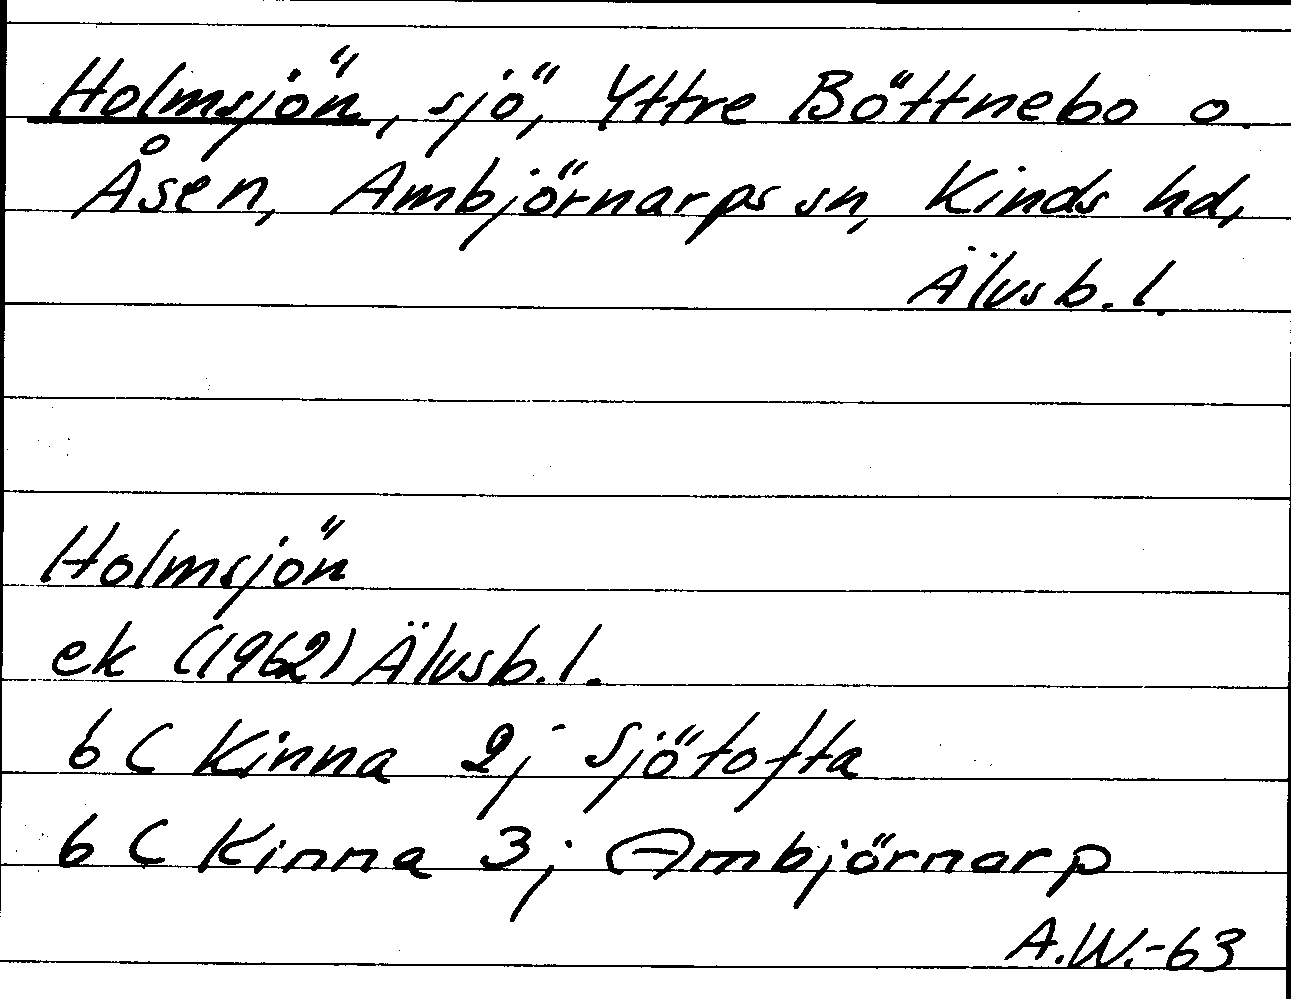 Holmsjön, sjö, Yttre Böttnebo o.
Åsen, Ambjörnarps sn, Kinds hd,
Älvsb. l.
Holmsjön
ek (1962) Älvsb. l.
6 C Kinna 2j Sjötofta
6 C Kinna 3j Ambjörnarp
A.W.-63